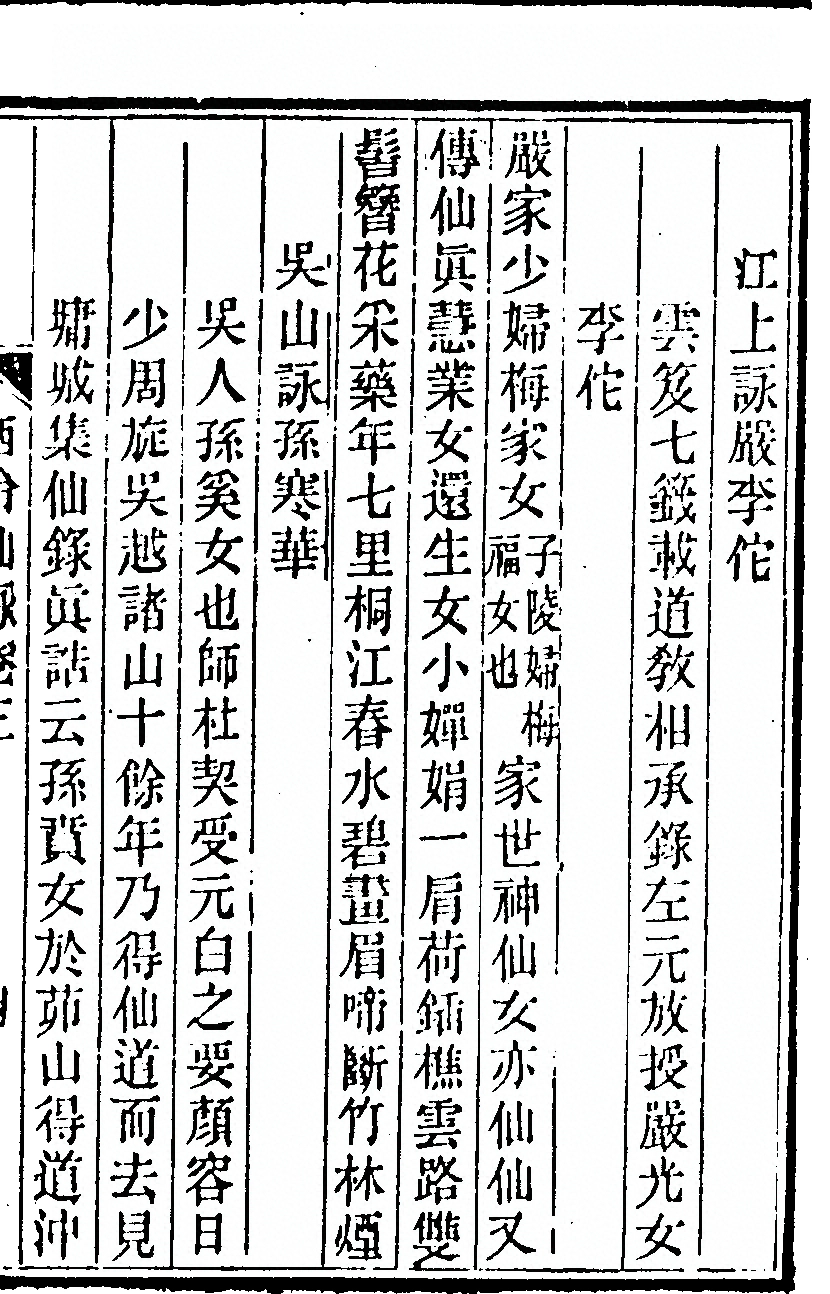 江上詠嚴李佗
雲笈七籤載道教相承錄左元放授嚴光女
李佗
嚴家少婦梅家女子陵婦梅福女也家世神仙女亦仙仙又
傳仙眞慧業女還生女小嬋娟一肩荷鍤樵雲路雙
髻簪花采藥年七里桐江春水碧畫眉啼斷竹林煙
吳山詠孫寒華
吳人孫奚女也師杜契受元白之要顏容日
少周旋吳越諸山十餘年乃得仙道而去見
墉城集仙錄眞誥云孫賁女於茆山得道沖